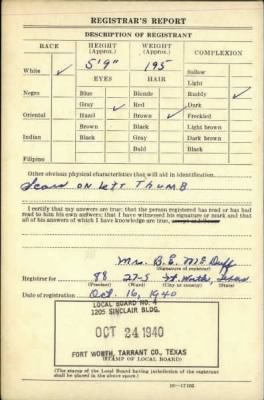 REGISTRAR'S REPORT
DESCRIPTION OF REGISTRANT
RACE
HEIGHT (Approx.)
WEIGHT (Approx.)
COMPLEXION
White ✓
5'9"
195
Sallow
Light
EYES
HAIR
Ruddy ✓
Negro
Blue
Blonde
Dark
Gray ✓
Red
Freckled
Oriental
Hazel
Brown ✓
Light brown
Brown
Black
Dark brown
Indian
Black
Gray
Black
Bald
Filipino
Other obvious physical characteristics that will aid in identification
Scar on left Thumb
I certify that my answers are true; that the person registered has read or has had
read to him his own answers; that I have witnessed his signature or mark and that
all of his answers of which I have knowledge are true, except as follows:
Mrs. B. E. McDuff
(Signature of registrar)
Registrar for 88 27-5 Ft. Worth, Texas
(Precinct) (Ward) (City or county) (State)
Date of registration Oct. 16, 1940
LOCAL BOARD NO. 4
1205 SINCLAIR BLDG.
OCT 24 1940
FORT WORTH, TARRANT CO., TEXAS
(STAMP OF LOCAL BOARD)
(The stamp of the Local Board having jurisdiction of the registrant
shall be placed in the above space.)
16—17105